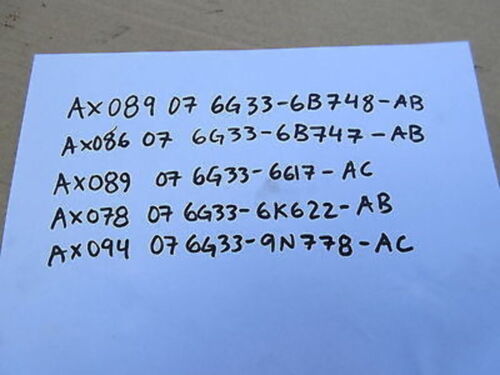 AX089 07 6G33-6B748-AB
AX086 07 6G33-6B747-AB
AX089 07 6G33-6617-AC
AX078 07 6G33-6K622-AB
AX094 07 6G33-9N778-AC